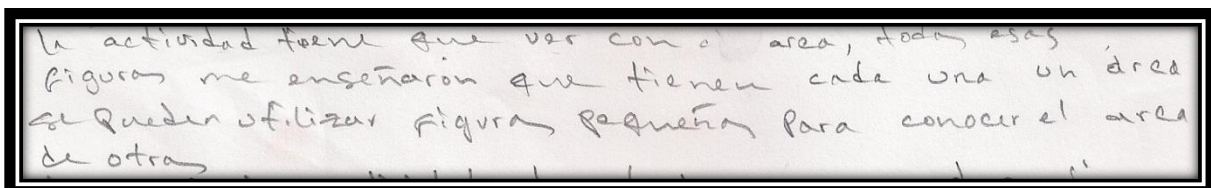 la actividad tiene que ver con el area, todas esas
figuras me enseñaron que tienen cada una un área
se pueden utilizar figuras pequeñas para conocer el area
de otras